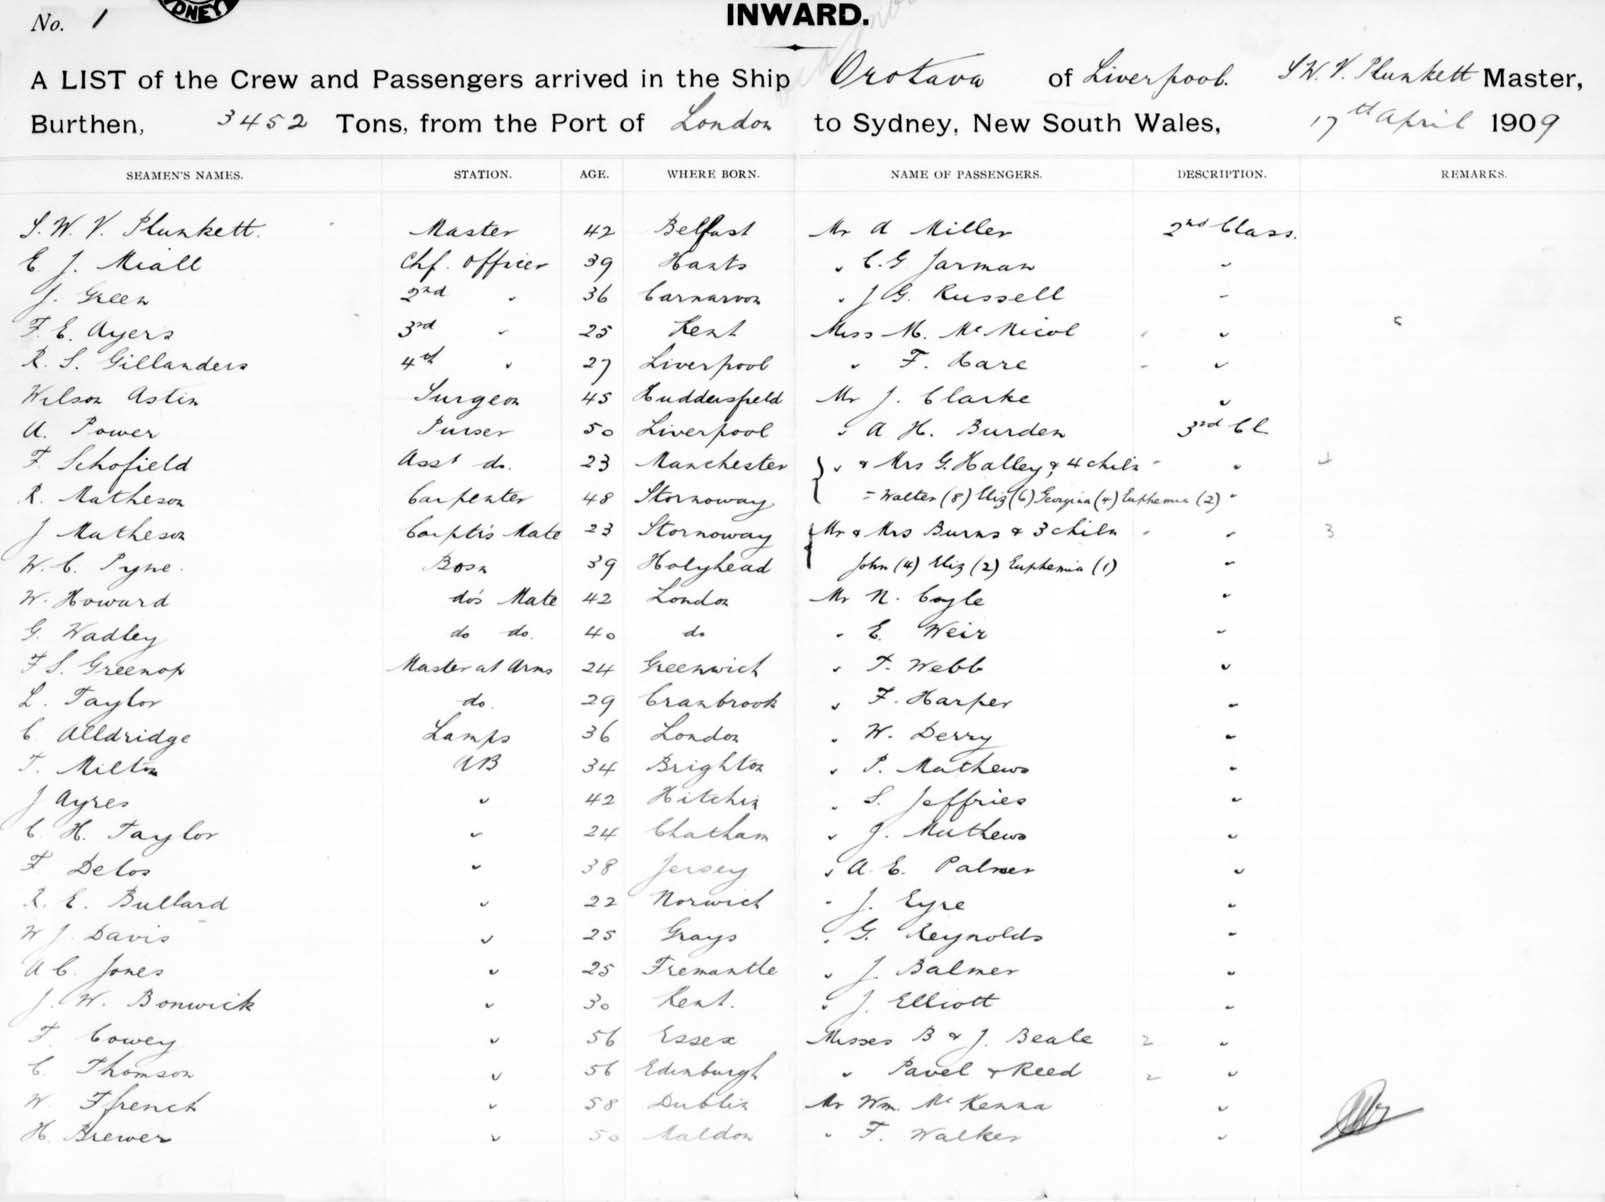 SYDNEY
No. 1
INWARD.
A LIST of the Crew and Passengers arrived in the Ship Orotava of Liverpool. S W. V. Plunkett Master,
Burthen, 3452 Tons, from the Port of London to Sydney, New South Wales, 17th April 1909
SEAMEN'S NAMES. STATION. AGE. WHERE BORN. NAME OF PASSENGERS. DESCRIPTION. REMARKS.
S. W. V. Plunkett. Master 42 Belfast Mr A Miller 2nd Class.
E J. Miall Chf. Officer 39 Hants " C.G Jarman "
J. Green 2nd " 36 Carnarvon " J G. Russell "
F. E. Ayers 3rd " 25 Kent Miss M. McNicol "
R. S. Gillanders 4th " 27 Liverpool " F. Hare "
Wilson Astin Surgeon 45 Huddersfield Mr J. Clarke "
A. Power Purser 50 Liverpool " A H. Burden 3rd Cl
F. Schofield Asst do. 23 Manchester " & Mrs G. Halley & 4 chiln "
R. Matheson Carpenter 48 Stornoway = Walter (8) Eliz (6) Georgina (4) Euphemia (2) "
J Matheson Carptr's Mate 23 Stornoway Mr & Mrs Burns & 3 chiln " 3
W. C. Pyne. Bosn 39 Holyhead John (4) Eliz (2) Euphemia (1) "
W. Howard do's Mate 42 London Mr N. Coyle "
G. Wadley do do. 40 do " E. Weir "
F S. Greenop Master at Arms 24 Greenwich " T. Webb "
L. Taylor do. 29 Cranbrook " F. Harper "
C Alldridge Lamps 36 London " W. Derry "
T. Milton AB 34 Brighton " P. Mathews "
J Ayres " 42 Hitchin " S. Jeffries "
C H. Taylor " 24 Chatham " J. Mathews "
F Delos " 38 Jersey " A. E. Palmer "
R. E. Bullard " 22 Norwich " J. Eyre "
W J. Davis " 25 Grays " G. Reynolds "
A C. Jones " 25 Fremantle " J. Balmer "
J. W. Bonwick " 30 Kent. " J. Elliott "
F. Cowey " 56 Essex Misses B & J. Beale 2 "
C. Thomson " 56 Edinburgh " Pavel & Reed 2 "
W. Ffrench " 58 Dublin Mr Wm. McKenna "
H. Brewer " 50 Maldon " F. Walker "